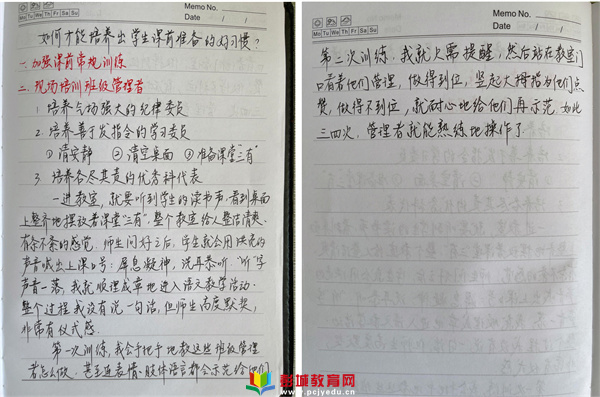 Memo No.
Mo Tu We Th Fr Sa Su
Date / /
如何才能培养出学生课前准备的好习惯?
一.加强课前常规训练
二.现场培训班级管理者
1. 培养气场强大的纪律委员
2. 培养善于发指令的学习委员
①请安静 ②清空桌面 ③准备课堂"三有"
3. 培养各尽其责的优秀科代表
一进教室,就要听到学生的读书声,看到桌面
上整齐地摆放着课堂"三有",整个教室给人整洁清爽、
有条不紊的感觉。师生问好之后,学生就会用洪亮的
声音喊出上课口号:屏息凝神,洗耳恭听。"听"字
声音一落,我就顺理成章地进入语文教学活动。
整个过程我没有说一句话,但师生高度默契,
非常有仪式感。
第一次训练,我会手把手地教这些班级管理
者怎么做,甚至连表情、肢体语言都会示范给他们
Memo No.
Mo Tu We Th Fr Sa Su
Date / /
第二次训练,我就只需提醒,然后站在教室门
口看着他们管理,做得到位,竖起大拇指为他们点
赞,做得不到位,就耐心地给他们再示范。如此
三四次,管理者就能熟练地操作了。
彭城教育网
www.pcjyedu.cn